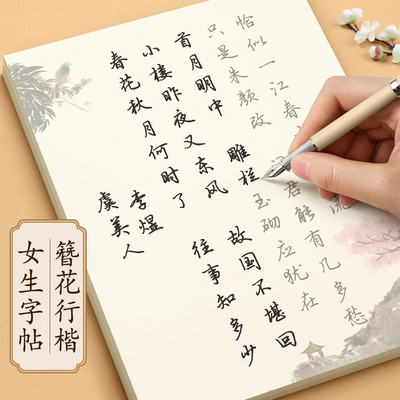 虞美人
李煜
春花秋月何时了 往事知多少
小楼昨夜又东风 故国不堪回
首月明中 雕栏玉砌应犹在
只是朱颜改 君能有几多愁
恰似一江春 流
簪花行楷
女生字帖